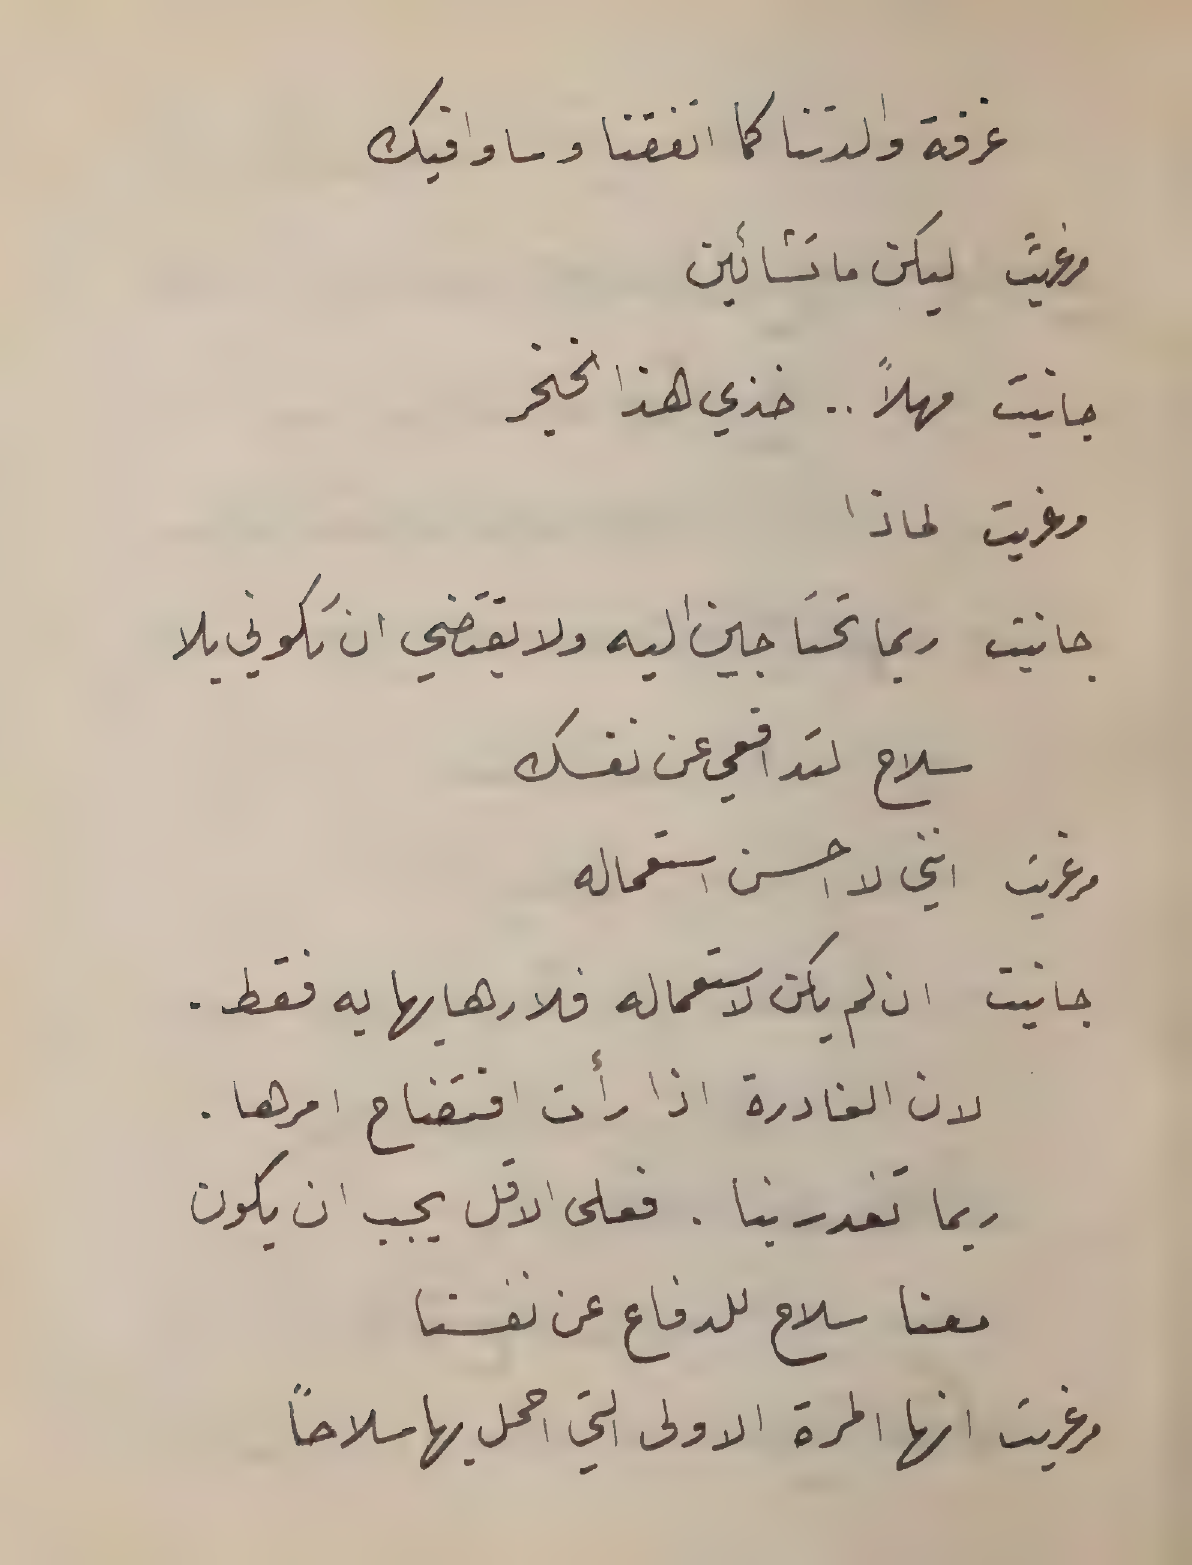 غرفة والدتنا كما اتفقنا وساوافيك
مرغريت ليكن ما تشائين
جانيت مهلاً .. خذي هذا الخنجر
مرغريت لماذا
جانيت ربما تحتاجين اليه ولا يقتضي ان تكوني بلا
سلاح لتدافعي عن نفسك
مرغريت انني لا احسن استعماله
جانيت ان لم يكن لاستعماله فلارهابها به فقط .
لان الغادرة اذا رأت افتضاح امرها .
ربما تغدر بنا . فعلى الاقل يجب ان يكون
معنا سلاح للدفاع عن نفسنا
مرغريت انها المرة الاولى التي احمل بها سلاحاً